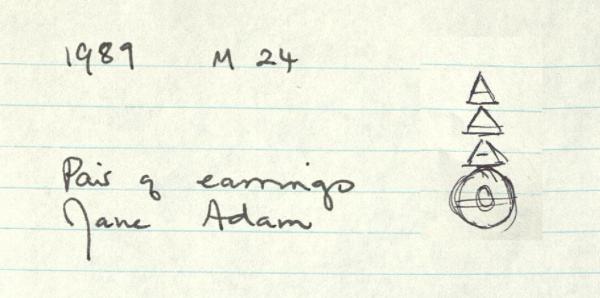 1989 M 24
Pair of earrings
Jane Adam